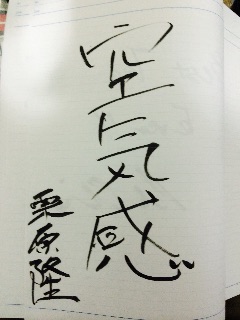 空気感
栗原隆